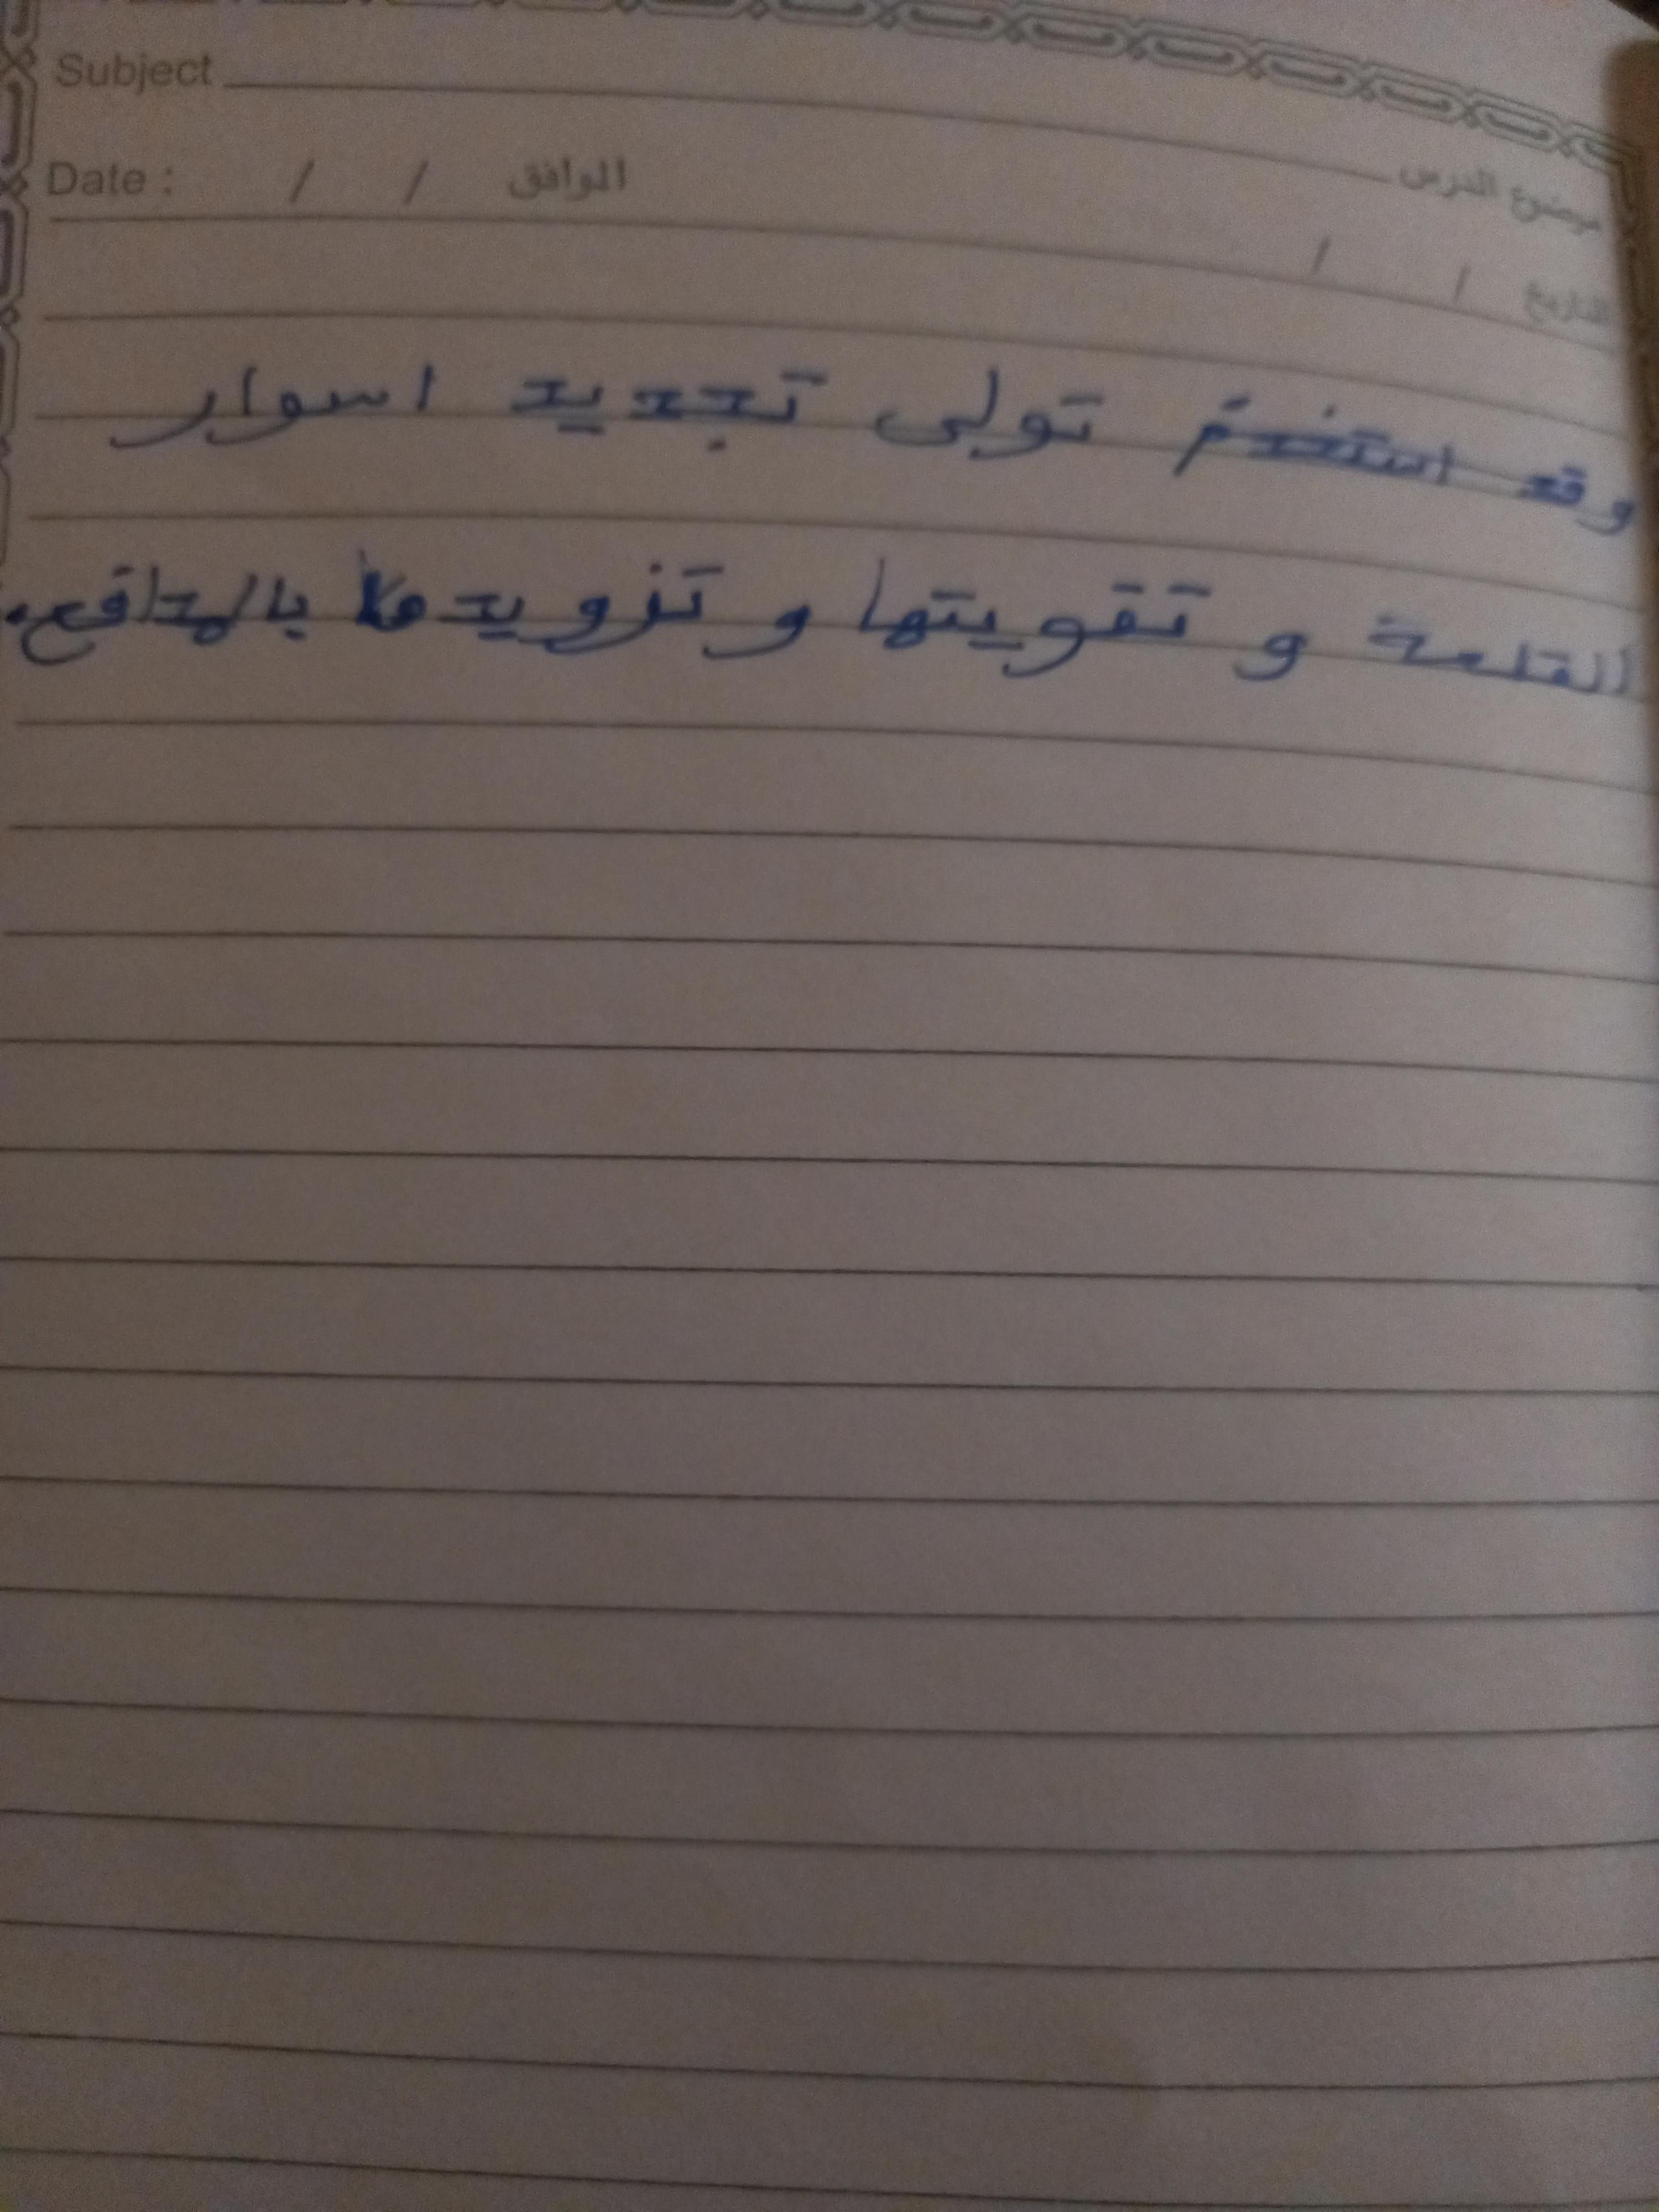 Subject موضوع الدرس
Date : / / الموافق التاريخ / /
وقد استخدم تولى تجديد اسوار
القلعة و تقويتها و تزويدها بالمدافع.